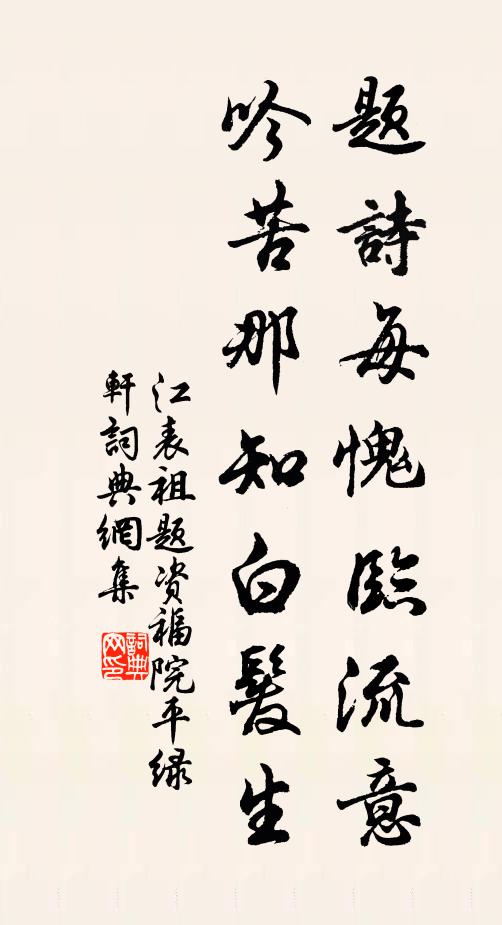 題詩每愧臨流意
吟苦那知白髮生
江表祖題资福院平緑
軒詞典網集
詞典网印